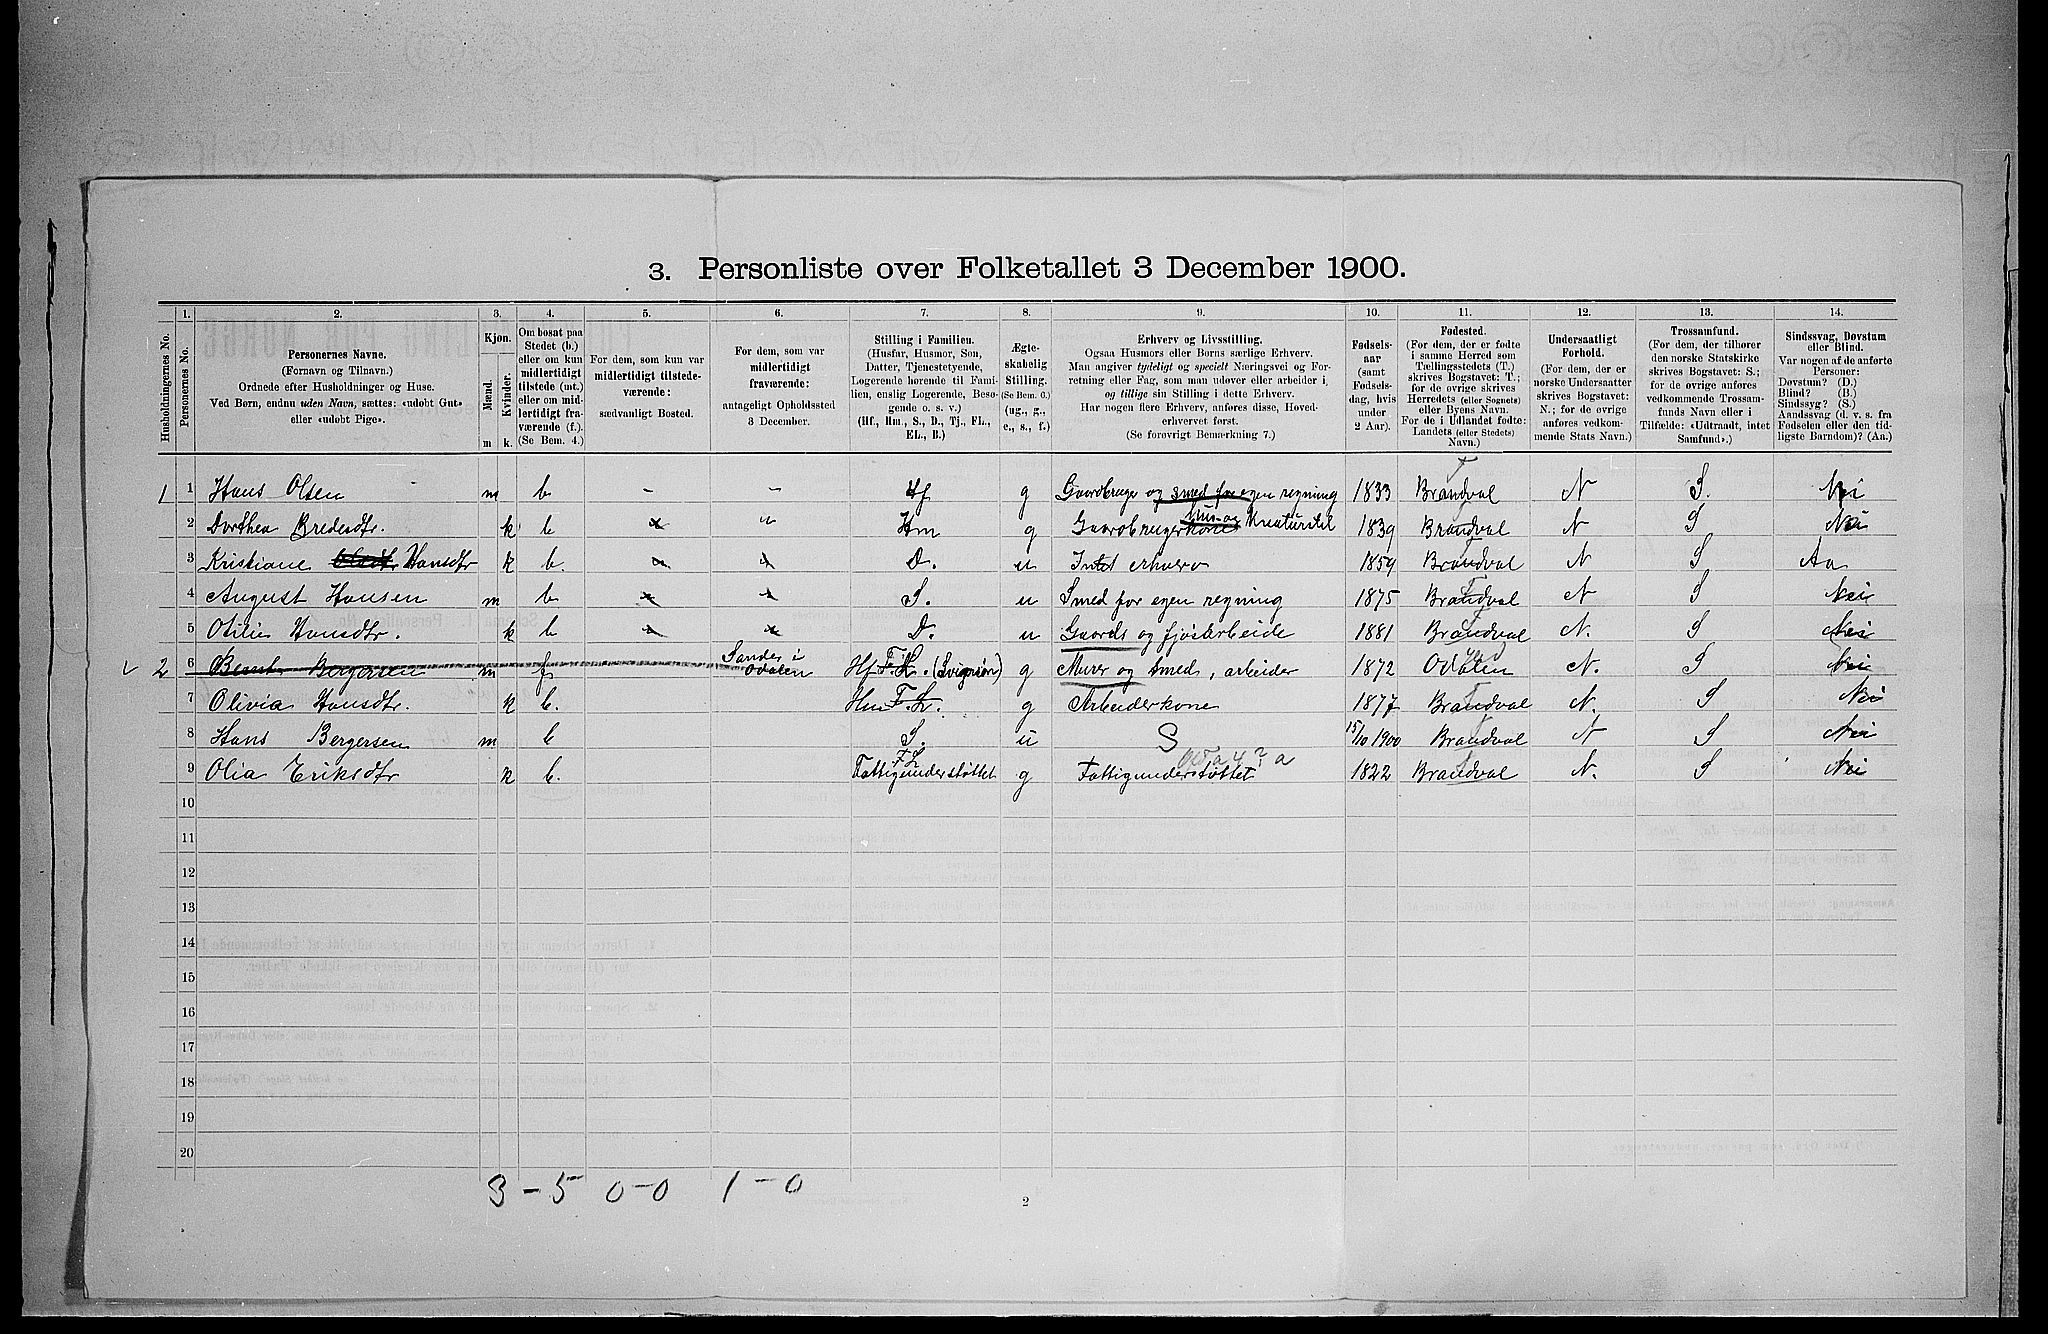 3. Personliste over Folketallet 3 December 1900.
Husholdningernes No.
1.
Personernes No.
2.
Personernes Navne.
(Fornavn og Tilnavn.)
Ordnede efter Husholdninger og Huse.
Ved Børn, endnu uden Navn, sættes: «udøbt Gut»
eller «udøbt Pige».
3.
Kjøn.
Mænd.
Kvinder.
m
k.
4.
Om bosat paa
Stedet (b.)
eller om kun
midlertidigt
tilstede (mt.)
eller om mid-
lertidigt fra-
værende (f.).
(Se Bem. 4.)
5.
For dem, som kun var
midlertidigt tilstede-
værende:
sædvanligt Bosted.
6.
For dem, som var
midlertidigt
fraværende:
antageligt Opholdssted
3 December.
7.
Stilling i Familien.
(Husfar, Husmor, Søn,
Datter, Tjenestetyende,
Logerende hørende til Fami-
lien, enslig Logerende, Besø-
gende o. s. v.)
(Hf., Hm., S., D., Tj., FL.,
EL., B.)
8.
Ægte-
skabelig
Stilling.
(Se Bem. 6.)
(ug., g.,
e., s., f.)
9.
Erhverv og Livsstilling.
Ogsaa Husmors eller Børns særlige Erhverv.
Man angiver tydeligt og specielt Næringsvei og For-
retning eller Fag, som man udøver eller arbeider i,
og tillige sin Stilling i dette Erhverv.
Har nogen flere Erhverv, anføres disse, Hoved-
erhvervet først.
(Se forøvrigt Bemærkning 7.)
10.
Fødsels-
aar
(samt
Fødsels-
dag, hvis
under
2 Aar).
11.
Fødested.
(For dem, der er fødte
i samme Herred som
Tællingsstedets (T.)
skrives Bogstavet: T.;
for de øvrige skrives
Herredets (eller Sognets)
eller Byens Navn.
For de i Udlandet fødte:
Landets (eller Stedets)
Navn.)
12.
Undersaatligt
Forhold.
(For dem, der er
norske Undersaatter
skrives Bogstavet:
N.; for de øvrige
anføres vedkom-
mende Stats Navn.)
13.
Trossamfund.
(For dem, der tilhører
den norske Statskirke
skrives Bogstavet: S.;
for de øvrige anføres
vedkommende Trossam-
funds Navn eller i
Tilfælde: «Udtraadt, intet
Samfund».)
14.
Sindssvag, Døvstum
eller Blind.
Var nogen af de anførte
Personer:
Døvstum? (D.)
Blind? (B.)
Sindssyg? (S.)
Aandssvag (d. v. s. fra
Fødselen eller den tid-
ligste Barndom)? (Aa.)
1 1 Hans Olsen m b - - Hf g Gaardbruger og smed for egen regning 1833 T Brandval N S. Nei
2 Dorthea Bredesdtr. k b " " Hm g Gaardbrugerkone Hus- og Kreaturstel 1839 T Brandval N S Nei
3 Kristiane Hansdtr k b. " " D. u Intet erhverv 1859 T Brandval N S Aa
4 August Hansen m b " " S. u Smed for egen regning 1875 T Brandval N S Nei
5 Otilie Hansdtr. k b " " D. u Gaards og fjøsarbeide 1881 T Brandval N. S Nei
2 6 Bernt Bergersen m f Sander i Odalen Hf F.L. (Svigersøn) g Murer og smed, arbeider 1872 Odalen N. S Nei
7 Olivia Hansdtr. k b. Hm F.L. g Arbeiderkone 1877 T Brandval N. S Nei
8 Hans Bergersen m b S. u S 15/10 1900 T Brandval N S Nei
9 Olia Eriksdtr k b. FL Fattigunderstøttet g Fattigunderstøttet 1822 T Brandval N. S Nei
10
11
12
13
14
15
16
17
18
19
20
3 - 5 0 - 0 1 - 0
2